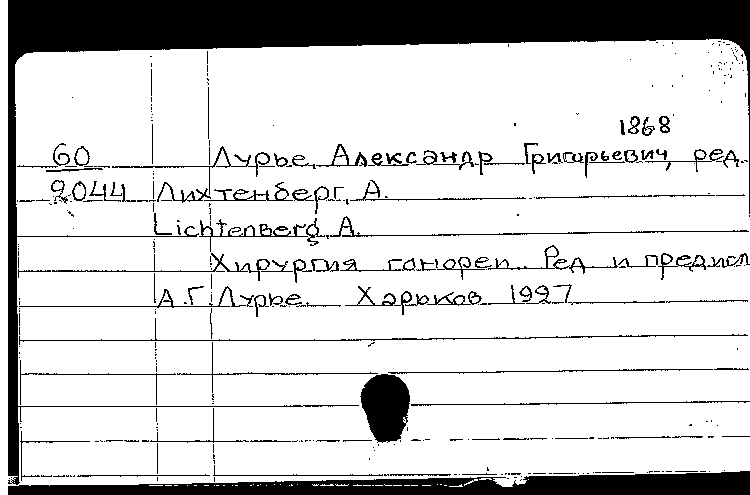 1868
60 Лурье, Александр Григорьевич, ред.
2044 Лихтенберг, А.
Lichtenberg, A.
Хирургия гонореи. Ред и предисл
А.Г. Лурье. Харьков 1927